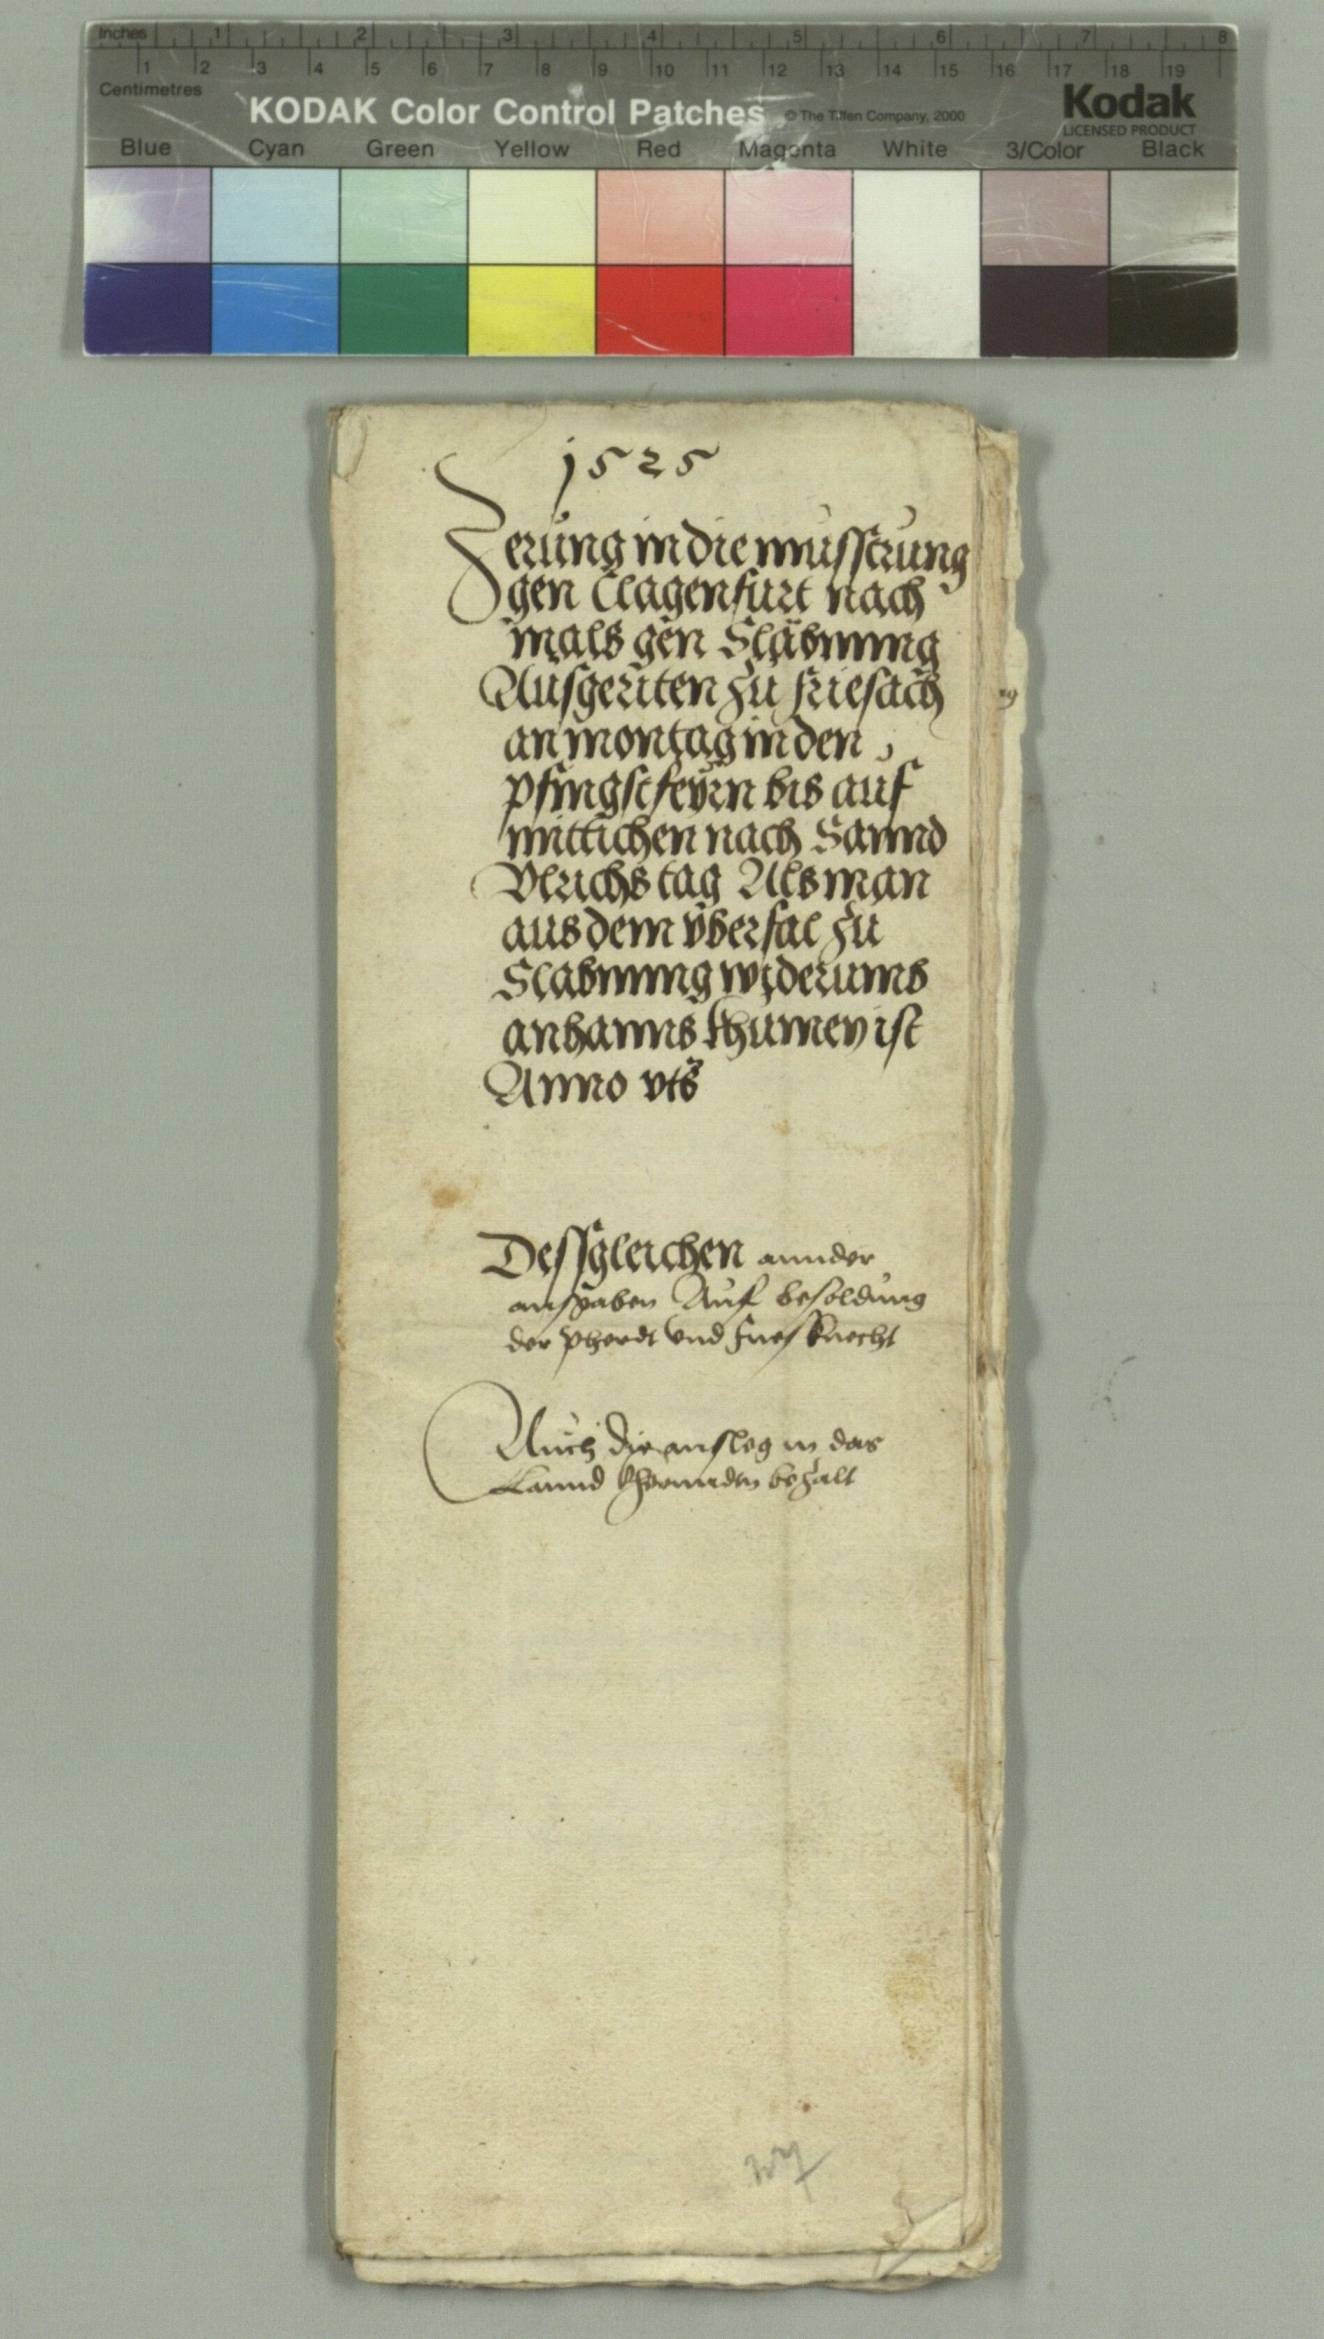 Inches 1 2 3 4 5 6 7 8
1 2 3 4 5 6 7 8 9 10 11 12 13 14 15 16 17 18 19
Centimetres
KODAK Color Control Patches © The Tiffen Company, 2000 Kodak
LICENSED PRODUCT
Blue Cyan Green Yellow Red Magenta White 3/Color Black
1525
Zerung in die musstrung
gen Clagenfurt nach
mals gen Släbming
Ausgeriten zu friesach
an montag in den
pfingstfeyrn bis auf
mittichen nach Sannd
Vlrichs tag Als man
aus dem vberfal zu
Slabming widerumb
anhaims khumen ist
Anno vts
Dessgleichen annder
ausgaben Auf besoldung
der pherdt vnd fuesknecht
Auch die anslag in das
Lannd bezalt